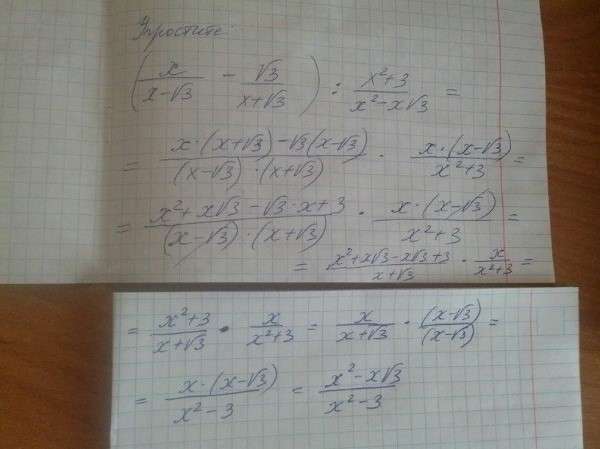 Упростите:
(x/(x-√3) - √3/(x+√3)) : (x²+3)/(x²-x√3) =
= (x·(x+√3)-√3(x-√3))/((x-√3)·(x+√3)) · (x·(x-√3))/(x²+3) =
= (x²+x√3-√3·x+3)/((x-√3)·(x+√3)) · (x·(x-√3))/(x²+3) =
= (x²+x√3-x√3+3)/(x+√3) · x/(x²+3) =
= (x²+3)/(x+√3) · x/(x²+3) = x/(x+√3) · (x-√3)/(x-√3) =
= (x·(x-√3))/(x²-3) = (x²-x√3)/(x²-3)